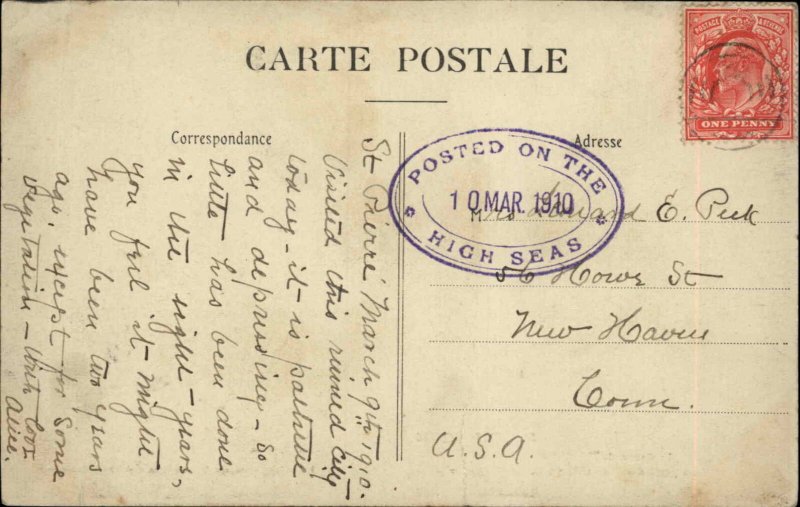 CARTE POSTALE
Correspondance
Adresse
POSTAGE & REVENUE
ONE PENNY
POSTED ON THE
10 MAR. 1910
HIGH SEAS
St Pierre March 9th 1910.
Visited this ruined city
today - it is pathetic
and depressing - so
little has been done
in the eight - years,
you feel it might
have been two years
ago. except for some
vegetation - With love
Alice.
Mrs Howard E. Peck
56 Howe St
New Haven
Conn.
U.S.A.